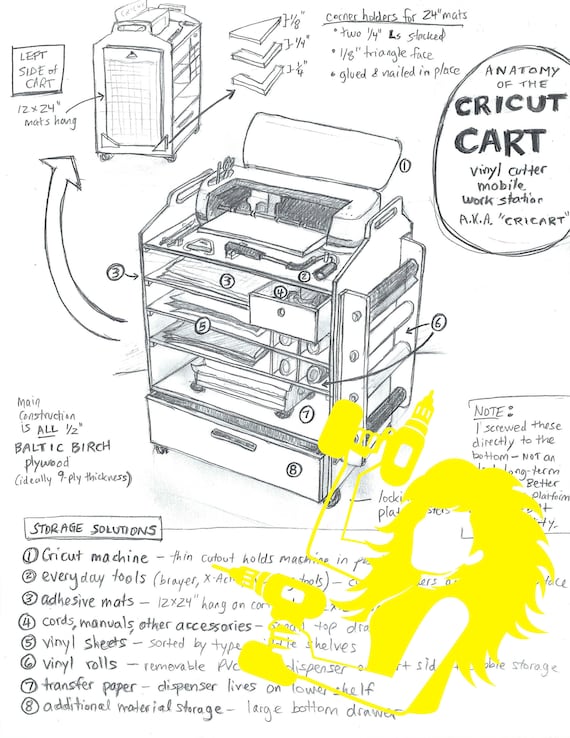 LEFT
SIDE of
CART
12x24"
mats hang
1/8"
1/4"
1/4"
corner holders for 24" mats
• two 1/4" Ls stacked
• 1/8" triangle face
• glued & nailed in place
ANATOMY
OF THE
CRICUT
CART
vinyl cutter
mobile
work station
A.K.A. "CRICART"
①
②
③
③
④
⑤
⑥
⑦
⑧
Main
construction
is ALL 1/2"
BALTIC BIRCH
plywood
(ideally 9-ply thickness)
NOTE:
I screwed these
directly to the
bottom - NOT an
long-term
Better
platform
STORAGE SOLUTIONS
① Cricut machine - thin cutout holds machine in
② everyday tools (brayer, tools) -
③ adhesive mats - 12x24" hang on
④ cords, manuals, other accessories - top
⑤ vinyl sheets, sorted by type shelves
⑥ vinyl rolls - removable PVC dispenser storage
⑦ transfer paper - dispenser lives on lower shelf
⑧ additional material storage - large bottom drawer